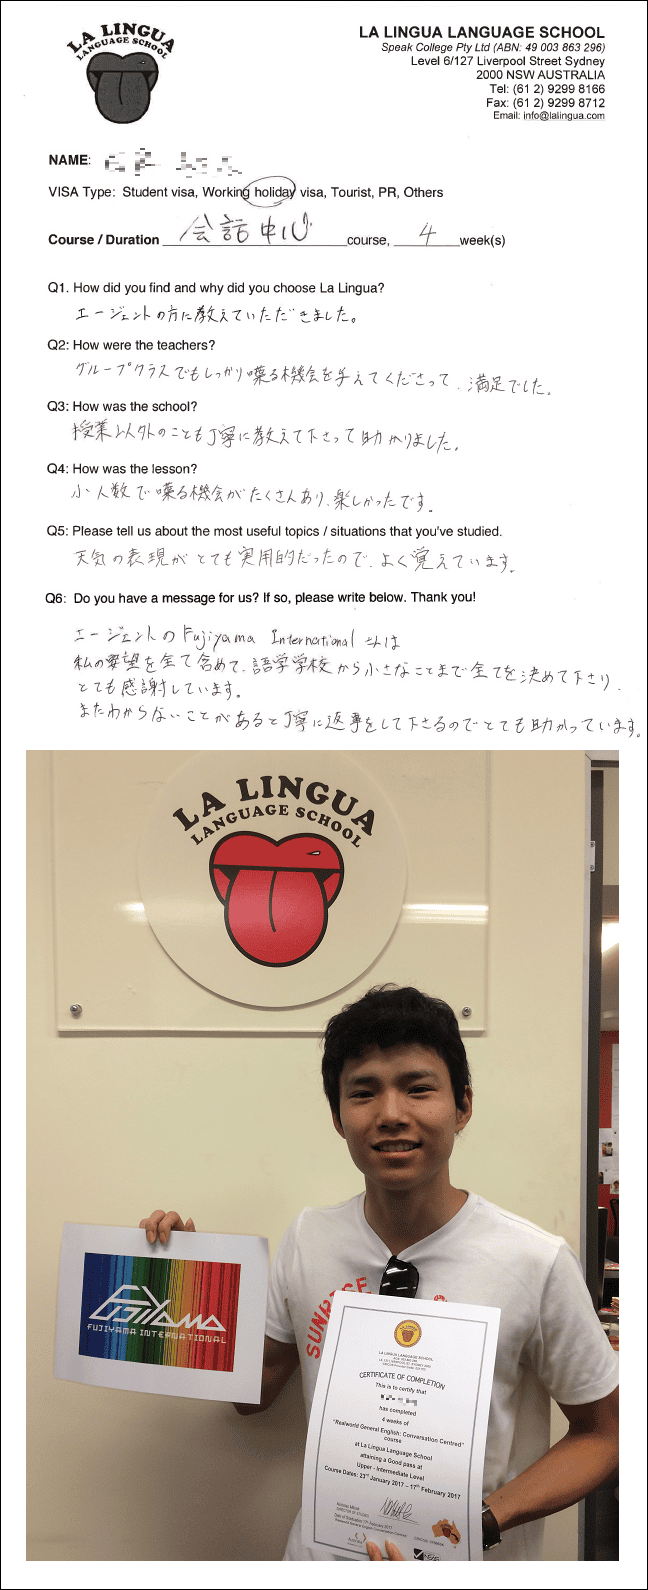 LA LINGUA
LANGUAGE SCHOOL
LA LINGUA LANGUAGE SCHOOL
Speak College Pty Ltd (ABN: 49 003 863 296)
Level 6/127 Liverpool Street Sydney
2000 NSW AUSTRALIA
Tel: (61 2) 9299 8166
Fax: (61 2) 9299 8712
Email: info@lalingua.com
NAME:
VISA Type: Student visa, Working holiday visa, Tourist, PR, Others
Course / Duration 会話中心 course, 4 week(s)
Q1. How did you find and why did you choose La Lingua?
エージェントの方に教えていただきました。
Q2: How were the teachers?
グループクラスでもしっかり喋る機会を与えてくださって、満足でした。
Q3: How was the school?
授業以外のことも丁寧に教えて下さって助かりました。
Q4: How was the lesson?
小人数で喋る機会がたくさんあり、楽しかったです。
Q5: Please tell us about the most useful topics / situations that you've studied.
天気の表現がとても実用的だったので、よく覚えています。
Q6: Do you have a message for us? If so, please write below. Thank you!
エージェントのFujiyama Internationalさんは
私の要望を全て含めて、語学学校から小さなことまで全てを決めて下さり、
とても感謝しています。
またわからないことがあると丁寧に返事をして下さるのでとても助かっています。
LA LINGUA
LANGUAGE SCHOOL
FUJIYAMA
FUJIYAMA INTERNATIONAL
LA LINGUA LANGUAGE SCHOOL
CERTIFICATE OF COMPLETION
This is to certify that
has completed
4 weeks of
"Realworld General English: Conversation Centred"
course
at La Lingua Language School
attaining a Good pass at
Upper - Intermediate Level
Course Dates: 23rd January 2017 – 17th February 2017